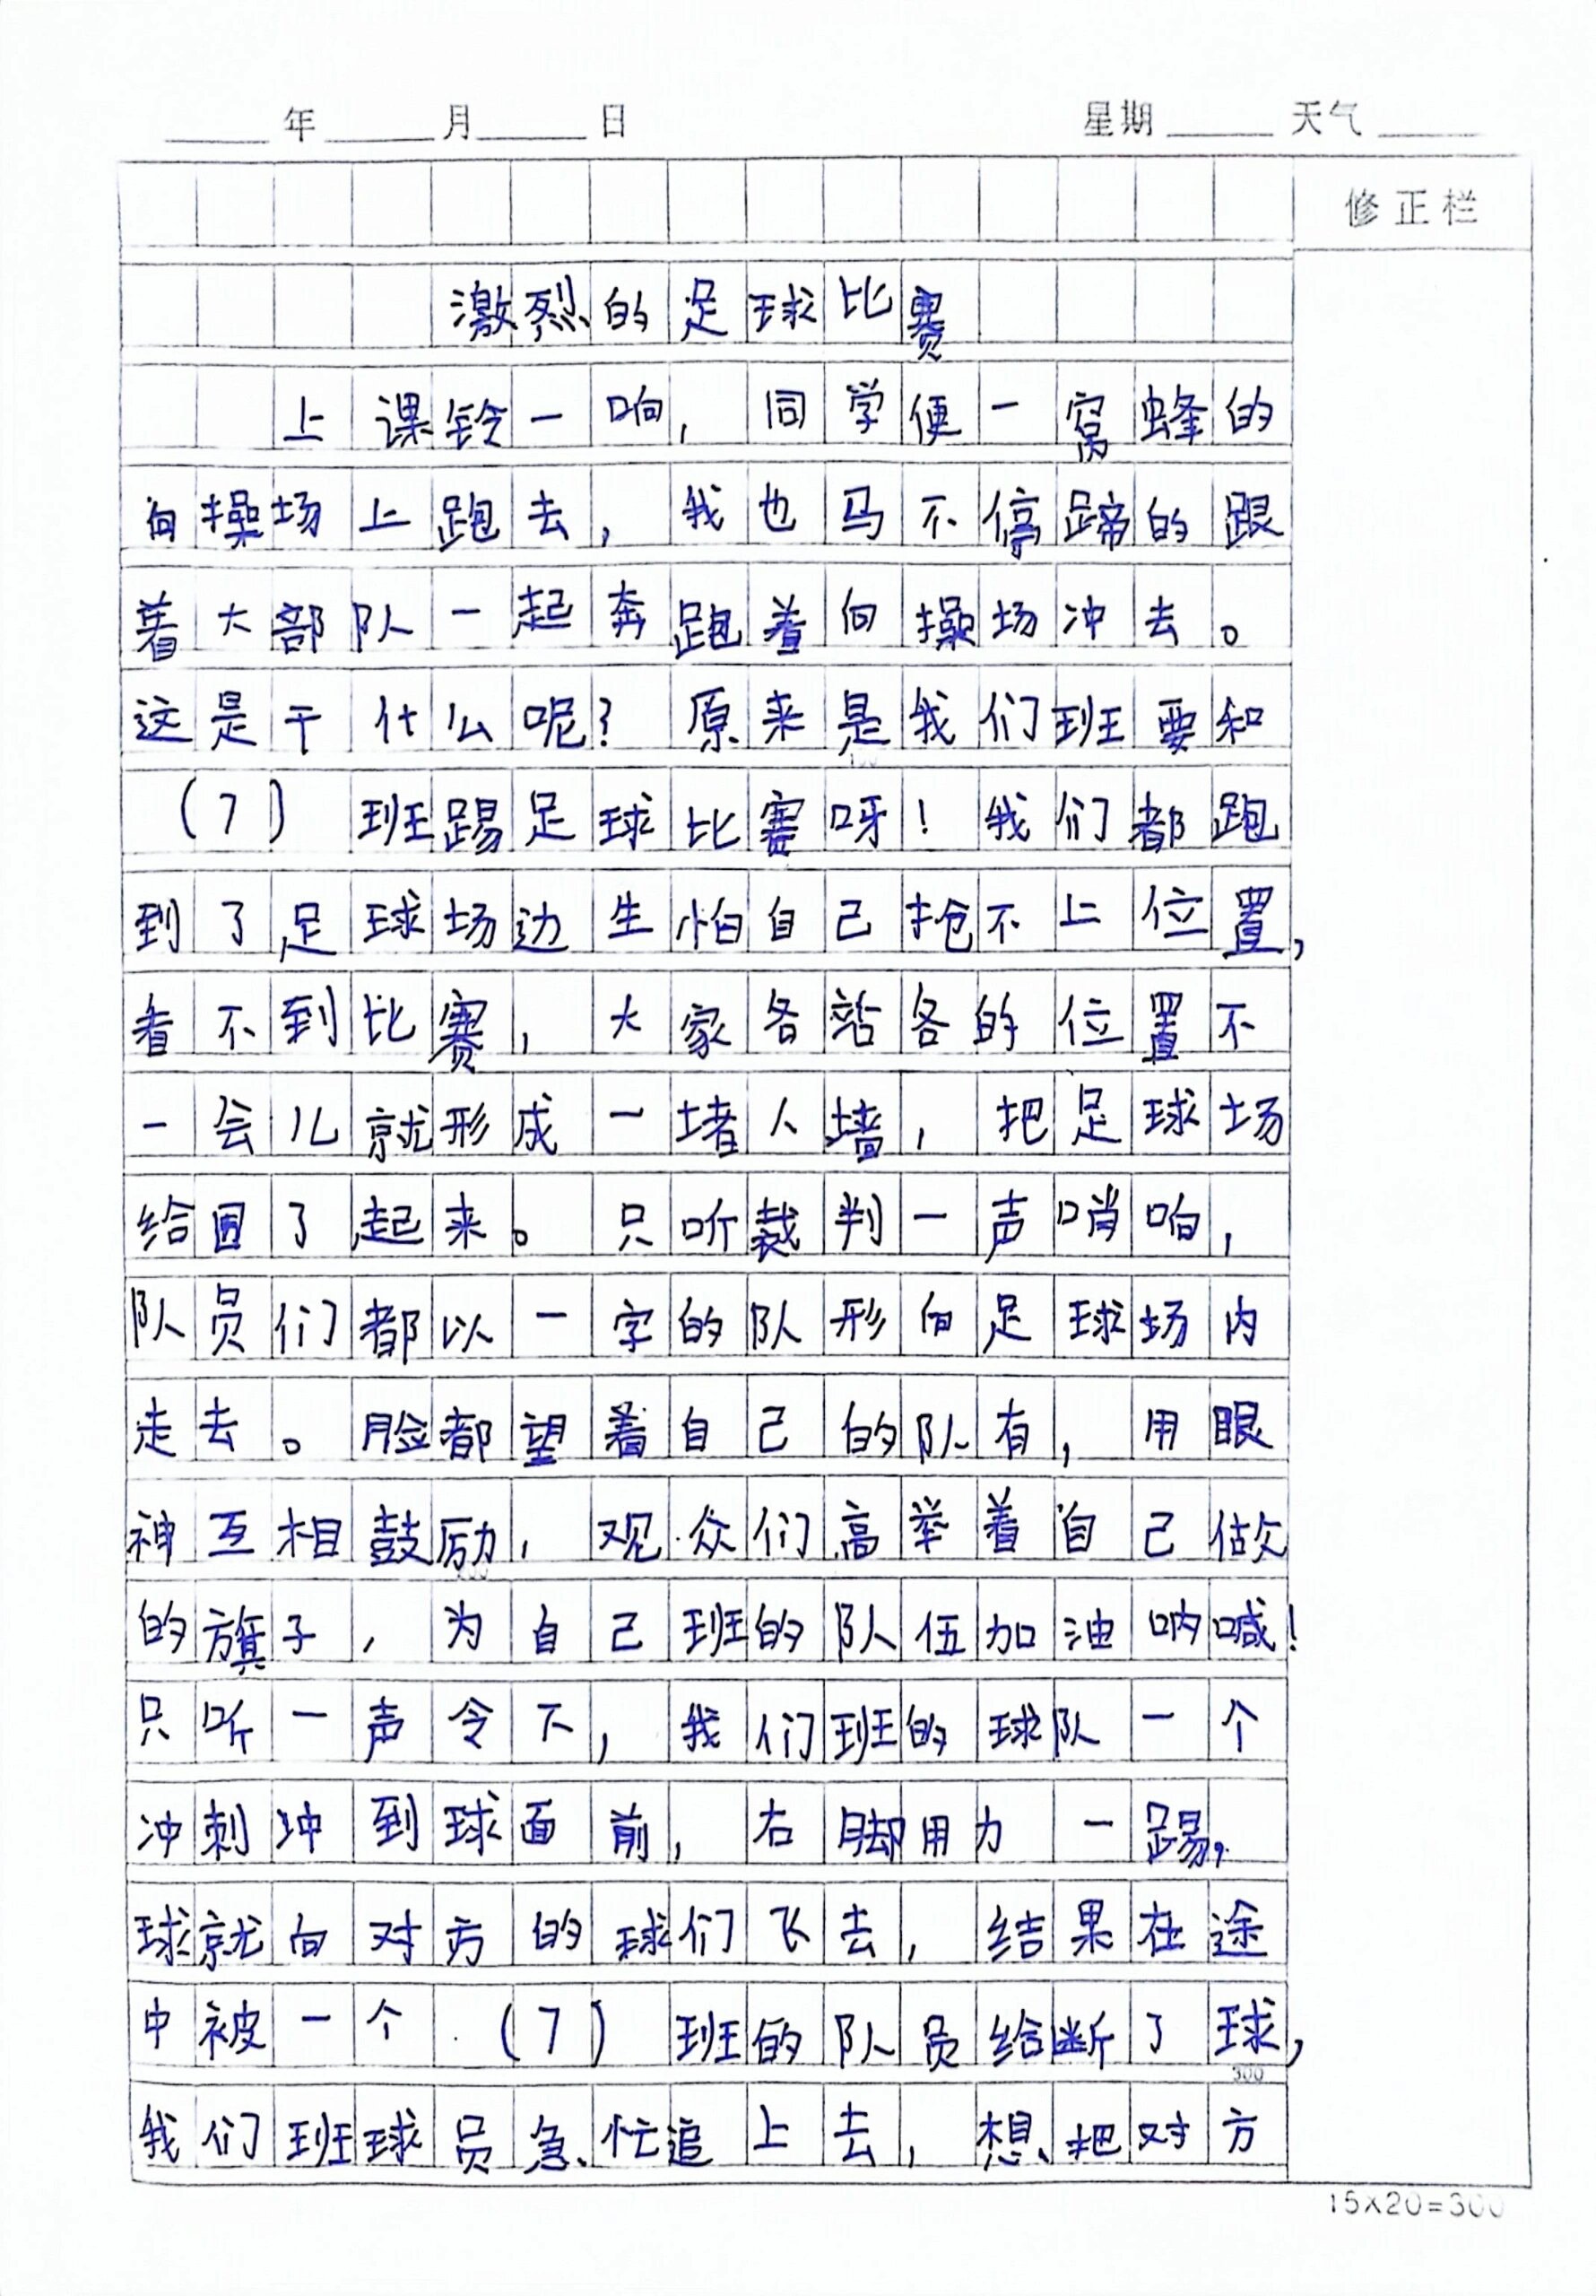 年 月 日 星期 天气
修正栏
激烈的足球比赛
上课铃一响，同学便一窝蜂的
向操场上跑去，我也马不停蹄的跟
着大部队一起奔跑着向操场冲去。
这是干什么呢？原来是我们班要和
（7）班踢足球比赛呀！我们都跑
到了足球场边生怕自己抢不上位置，
看不到比赛，大家各站各的位置不
一会儿就形成一堵人墙，把足球场
给围了起来。只听裁判一声哨响，
队员们都以一字的队形向足球场内
走去。脸都望着自己的队有，用眼
神互相鼓励，观众们高举着自己做
的旗子，为自己班的队伍加油呐喊！
只听一声令下，我们班的球队一个
冲刺冲到球面前，右脚用力一踢，
球就向对方的球们飞去，结果在途
中被一个（7）班的队员给断了球，
300
我们班球员急忙追上去，想把对方
15×20=300